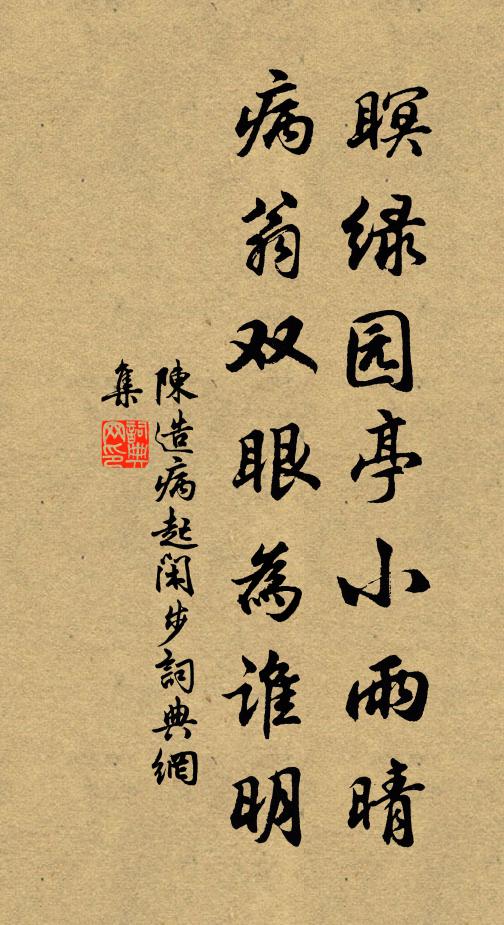 瞑绿园亭小雨晴
病翁双眼為谁明
陳造病起閑步詞典網
集
詞典网印